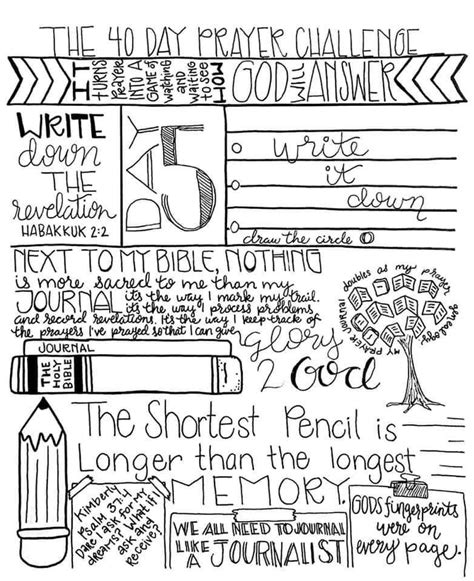 THE 40 DAY PRAYER CHALLENGE
IT TURNS PRAYER INTO A GAME OF WATCHING AND WAITING TO SEE HOW GOD WILL ANSWER
WRITE
down
THE
revelation
HABAKKUK 2:2
DAY 5
write
it
down
draw the circle
NEXT TO MY BIBLE, NOTHING
is more sacred to me than my
JOURNAL. it's the way I mark my trail.
it's the way I process problems
and record revelations. It's the way I keep track of
the prayers I've prayed so that I can give
glory
2 God
doubles as my prayer
genealogy
MY PRAYER JOURNAL
JOURNAL
THE HOLY BIBLE
The Shortest Pencil is
Longer than the longest
MEMORY.
Kimberly
Psalm 37:4
Dare I ask for my
dreams? What if I
ask and
receive?
WE ALL NEED TO JOURNAL
LIKE A JOURNALIST
GODS fingerprints
were on
every page.